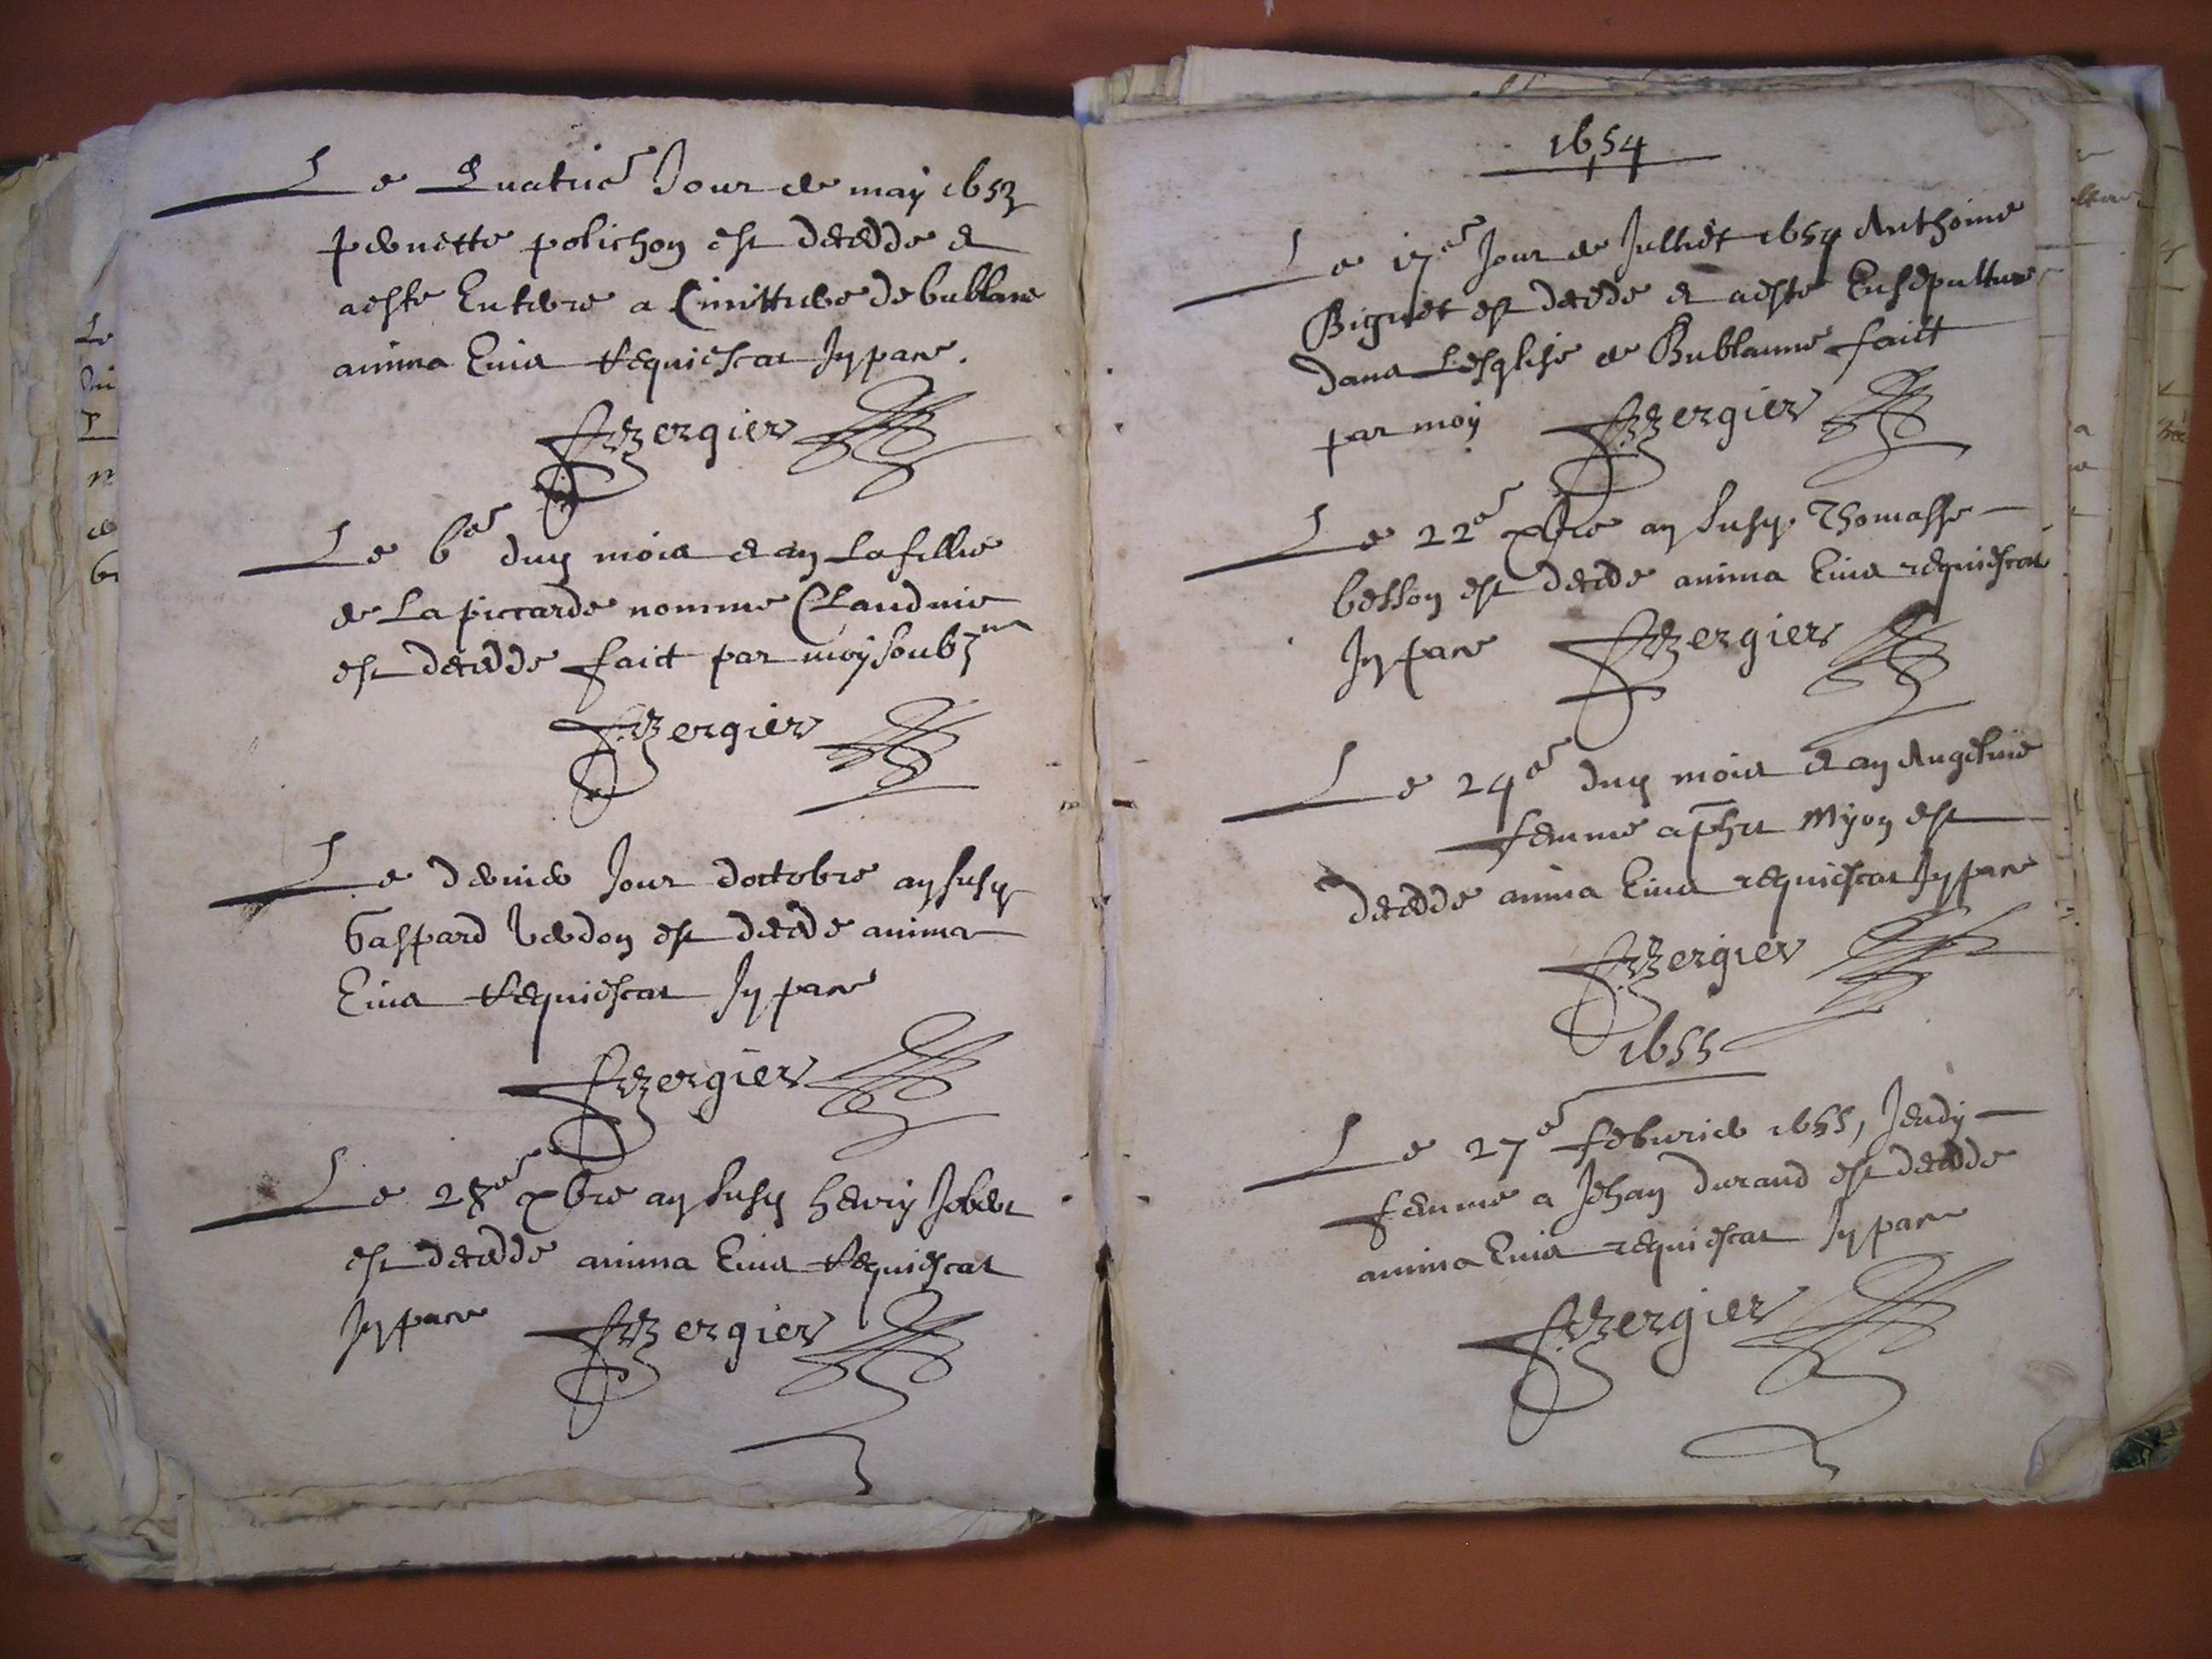 Le Quatrie Jour de may 1653
pernette polichon est decedde et
aeste Enterre a Cimittiere de bublane
anima Eius Requiescat In pace.
Bergier
Le 6e duy mois et an La fillie
de La piccarde nomme Claudnie
est decedde faict par moy soubz
Bergier
Le dernier Jour doctobre an susy
Gaspard Verdon est decede anima
Eius Requiescat In pace
Bergier
Le 28e xbre an susy henry Jober
est decedde anima Eius Requiescat
In pace Bergier
1654
Le 17e Jour de Julliet 1654 Anthoine
Biguet est decede et aeste Ensepulture
dans Lesglise de Bublanne faict
par moy Bergier
Le 22e xbre an susy Thomasse
besson est decede anima Eius requiescat
In pace Bergier
Le 24e duy mois et an Angelinie
femme a Myon est
decedde anima Eius requiescat In pace
Bergier
1655
Le 27e feburier 1655, Jeudy
femme a Jehan durand est decedde
anima Eius requiescat In pace
Bergier